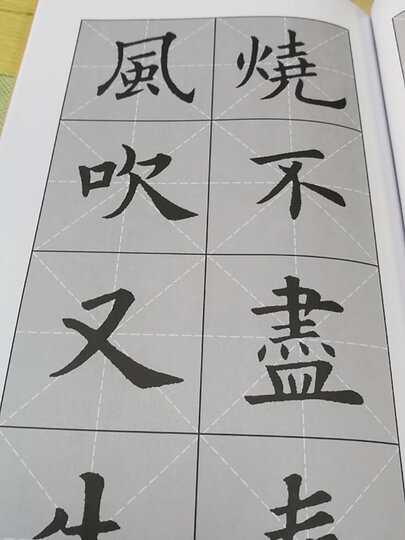 燒不盡
風吹又